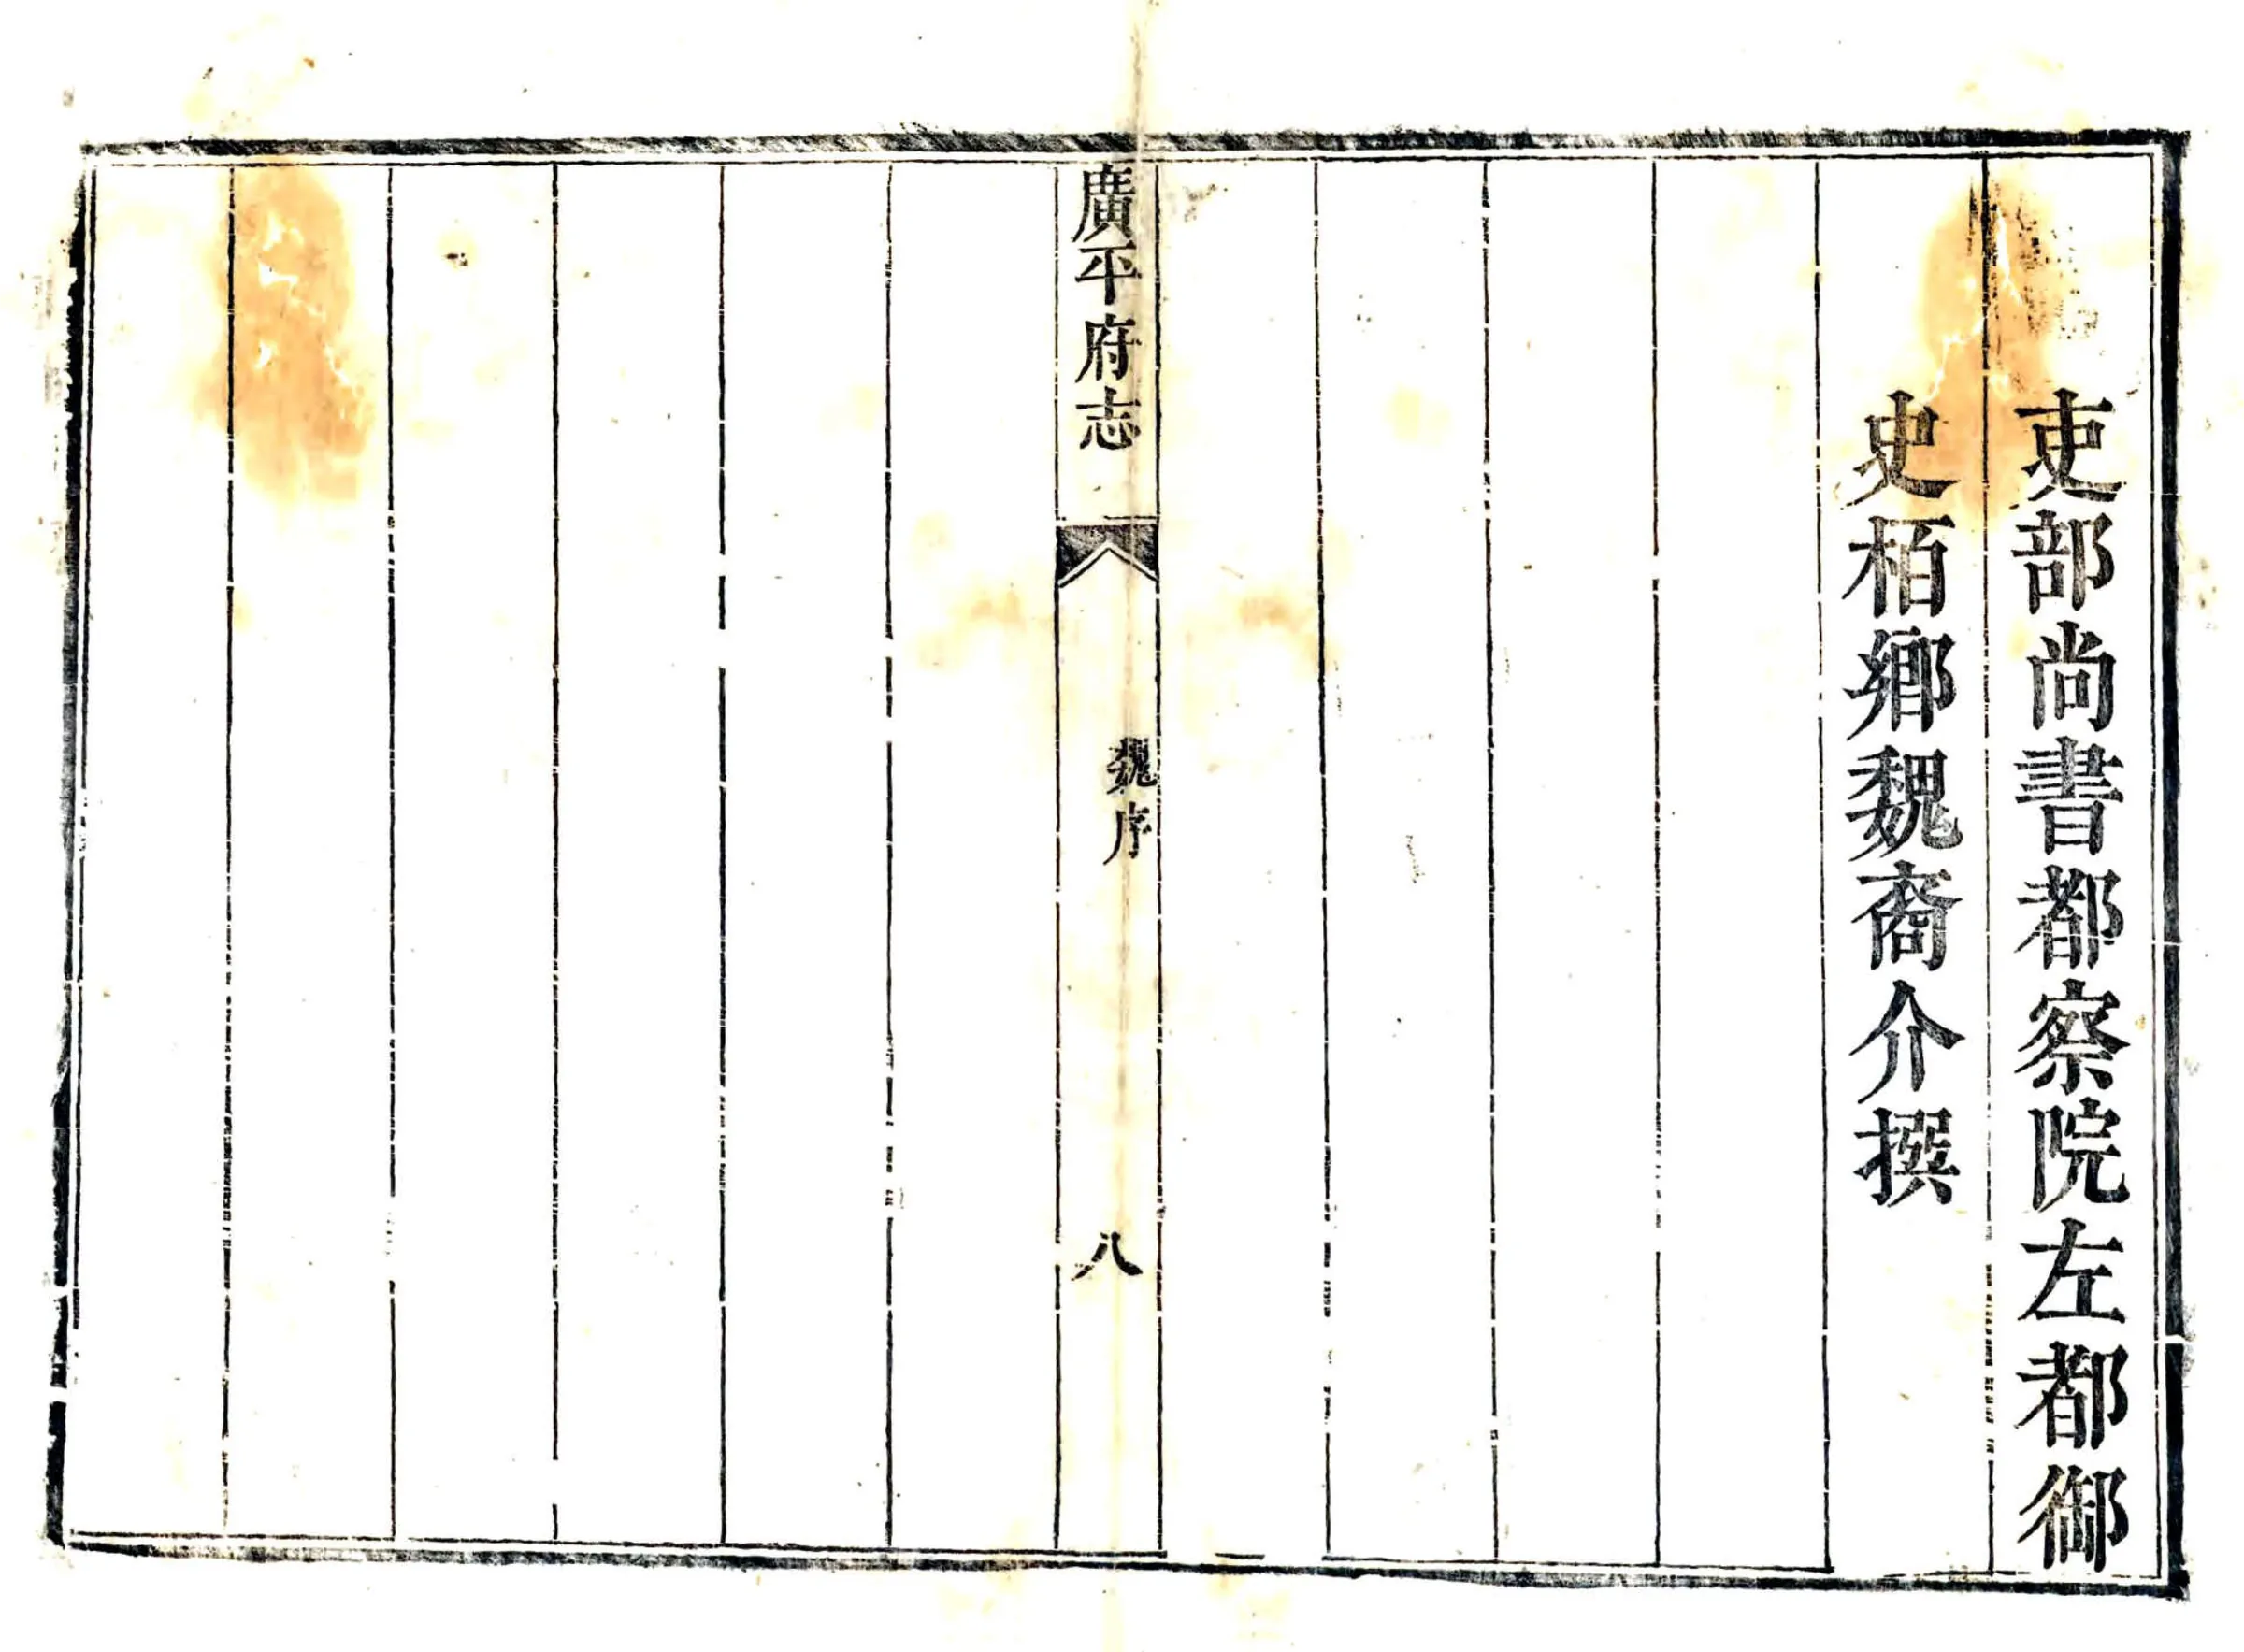 吏部尚書都察院左都御
史栢鄉魏裔介撰
廣平府志
魏序
八